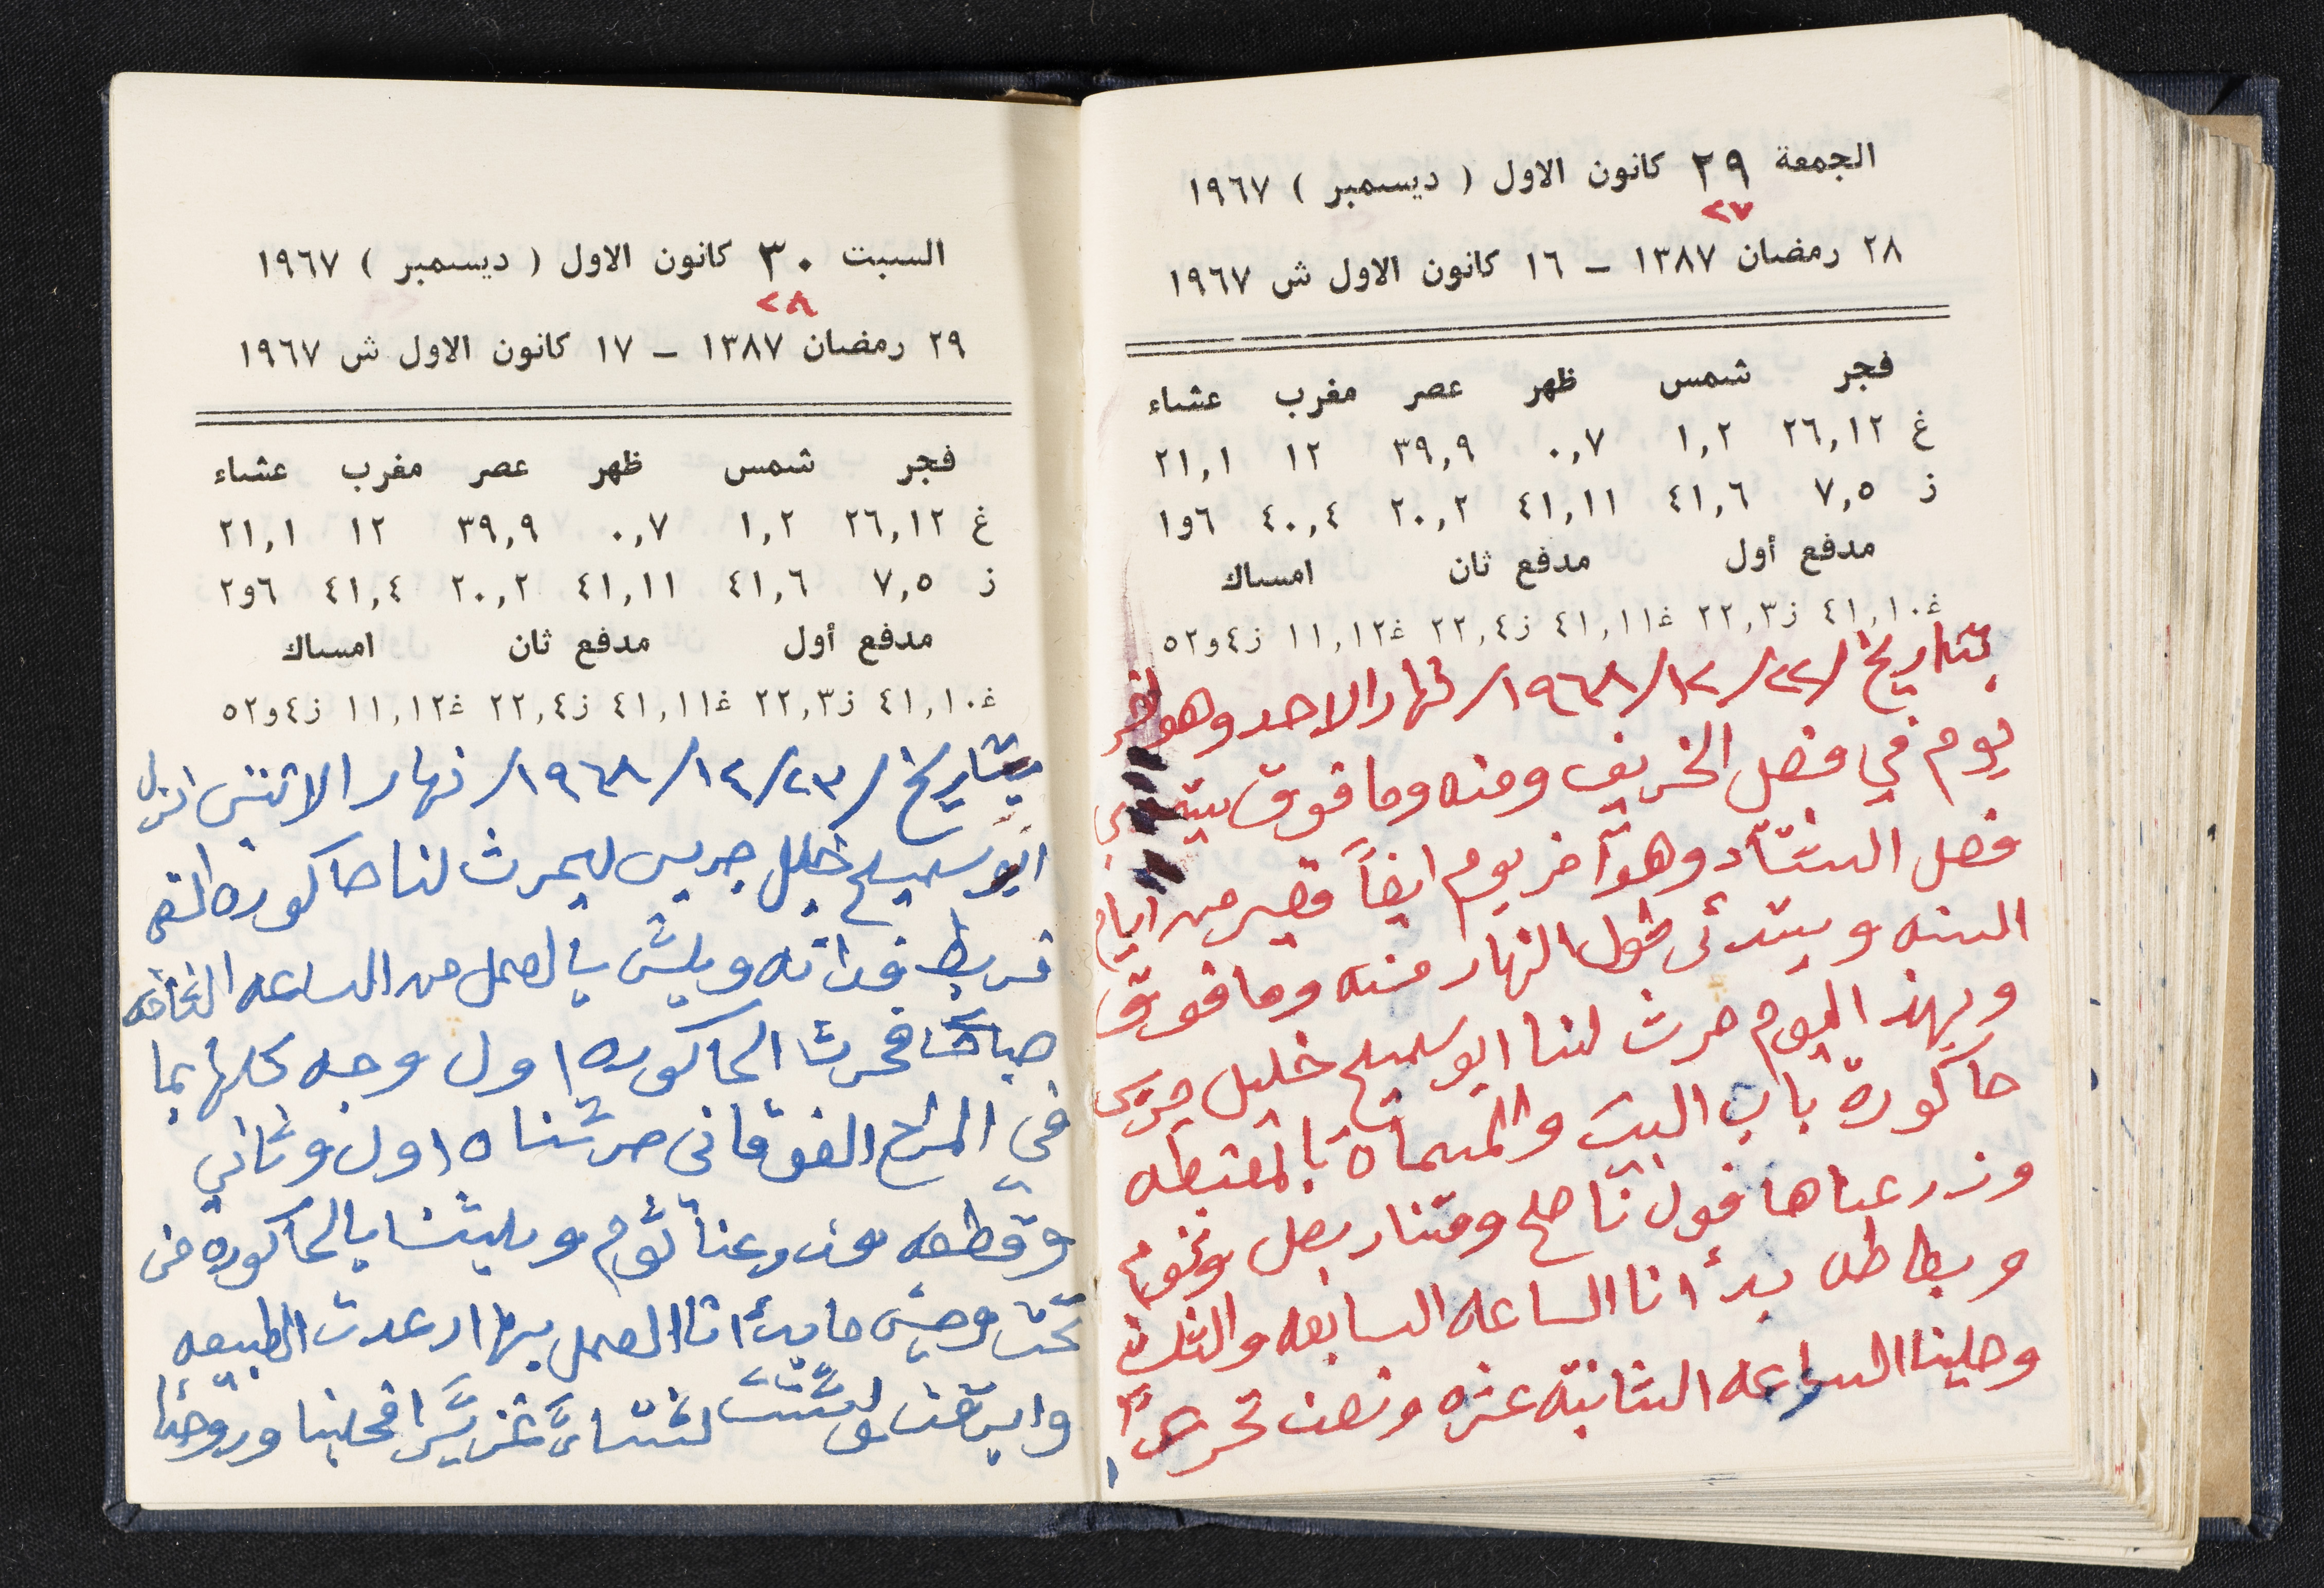 الجمعة ٢٩ كانون الاول ( ديسمبر ) ١٩٦٧
٢٧
٢٨ رمضان ١٣٨٧ ـ ١٦ كانون الاول ش ١٩٦٧
فجر شمس ظهر عصر مغرب عشاء
غ ٢٦,١٢ ١,٢ ٠,٧ ٣٩,٩ ١٢ ٢١,١
ز ٧,٥ ٤١,٦ ٤١,١١ ٢٠,٢ ٤٠,٤ ٦و١
مدفع أول مدفع ثان امساك
غ١٠,٤١ ز٢٢,٣ غ٤١,١١ ز٢٢,٤ غ١١,١٢ ز٤و٥٢
بتاريخ /٢٢/١٢/١٩٦٨/ نهار الاحد وهو اخر
يوم في فصل الخريف ومنه وما فوق
فصل الشتاء وهو آخر يوم ايضاً قصير من ايام
السنه ويبتدئ طول النهار منه وما فوق
وبهذ اليوم حرث لنا ابو سميح خليل جريس
حاكورة باب البيت والمسماة بالمقتطه
وزرعناها فول ناصح وقنار بصل وثوم
وبطاطه بدأنا الساعه السابعه والثلث
وحلينا الساعه الثانية عشره ونصف تحريراً
السبت ٣٠ كانون الاول ( ديسمبر ) ١٩٦٧
٢٨
٢٩ رمضان ١٣٨٧ ـ ١٧ كانون الاول ش ١٩٦٧
فجر شمس ظهر عصر مغرب عشاء
غ ٢٦,١٢ ١,٢ ٠,٧ ٣٩,٩ ١٢ ٢١,١
ز ٧,٥ ٤١,٦ ٤١,١١ ٢٠,٢ ٤١,٤ ٦و٢
مدفع أول مدفع ثان امساك
غ١٠,٤١ ز٢٢,٣ غ٤١,١١ ز٢٢,٤ غ١١,١٢ ز٤و٥٢
بتاريخ /٢٣/١٢/١٩٦٨/ نهار الاثنين نزل
ابو سميح خليل جريس ليحرث لنا حاكورة
فربط فداته وبلش بالعمل من الساعه الثامنه
صباحاً فحرث الحاكوره اول وجه كلها بما
في المراح الفوقاني حرثناه اول وثاني
وقطعه وزرعنا ثوم وبلشنا بالحاكوره من
تحت وحين ما بدأنا العمل بها ارعدت الطبيعه
وابرقت وشتت شتاءً غزيراً فحلينا وروحنا